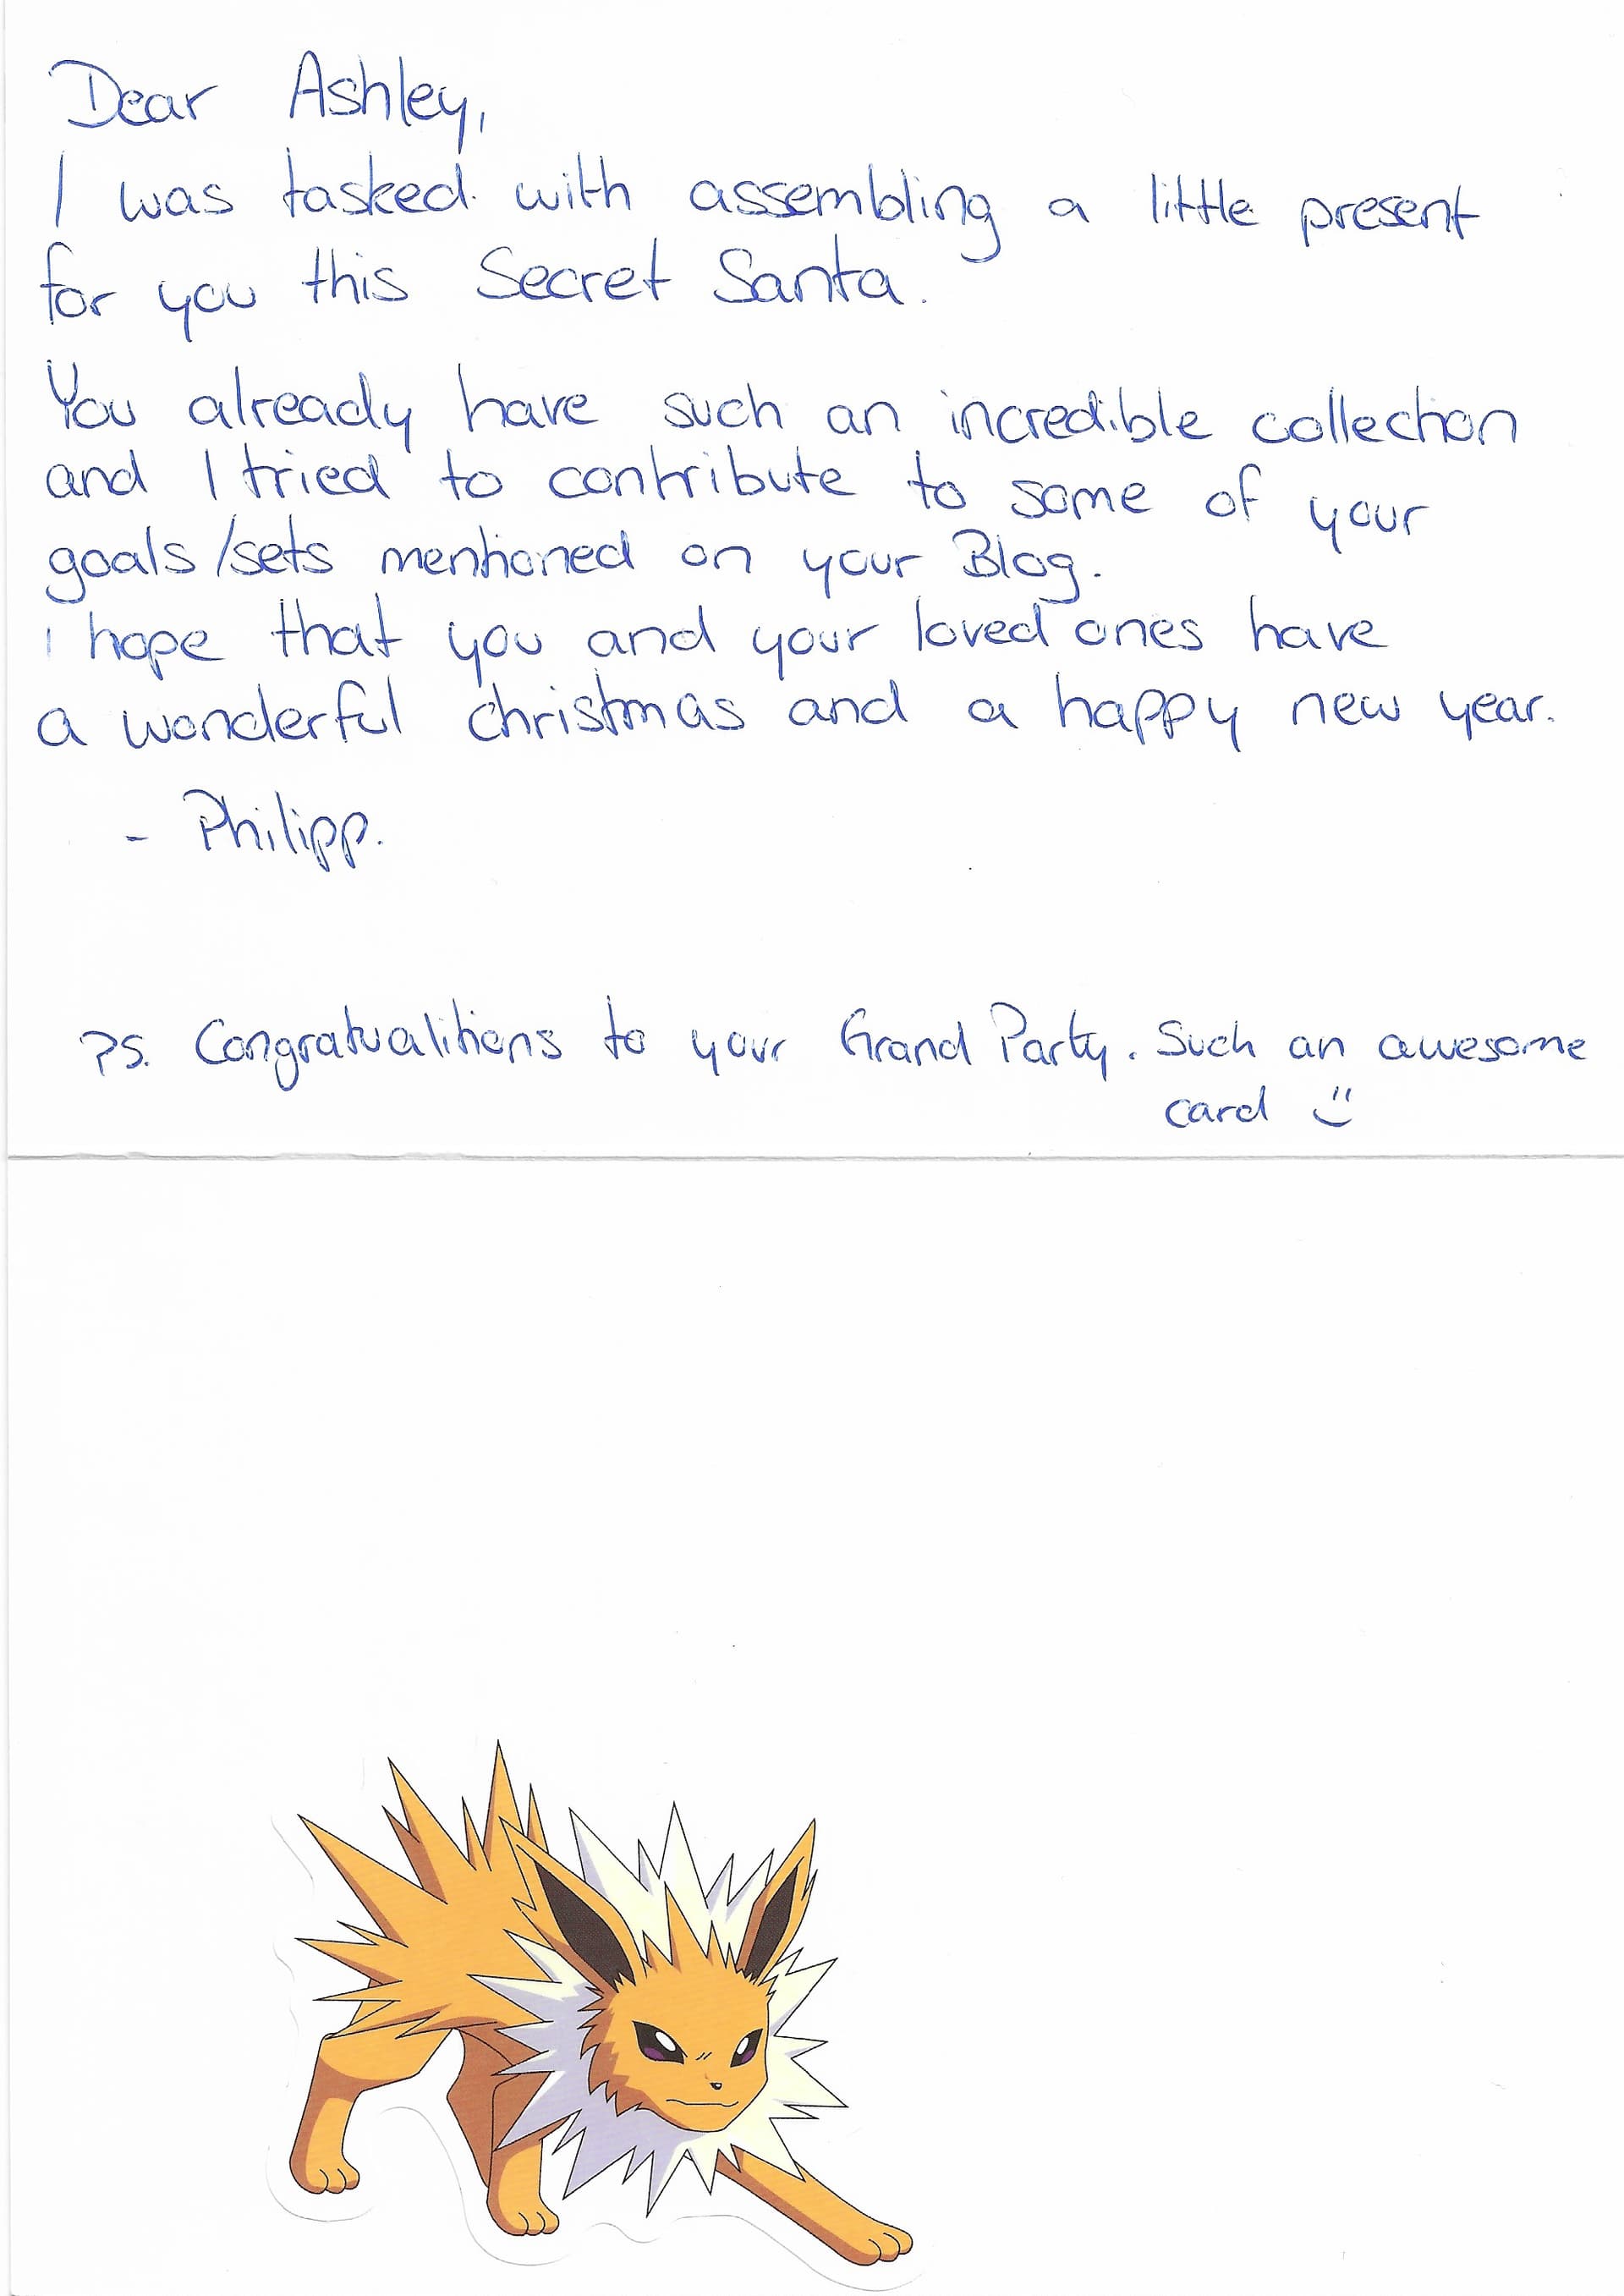 Dear Ashley,
I was tasked with assembling a little present
for you this Secret Santa.
You already have such an incredible collection
and I tried to contribute to some of your
goals/sets mentioned on your Blog.
i hope that you and your loved ones have
a wonderful christmas and a happy new year.
- Philipp.
PS. Congratualitions to your Grand Party. Such an awesome
card ü